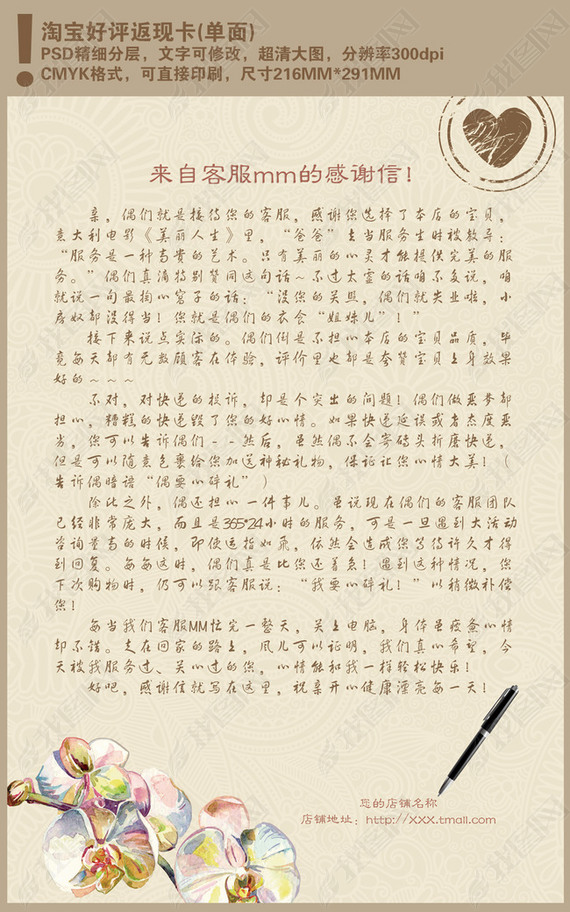 淘宝好评返现卡(单面)
PSD精细分层，文字可修改，超清大图，分辨率300dpi
CMYK格式，可直接印刷，尺寸216MM*291MM
来自客服mm的感谢信！
亲，偶们就是接待您的客服，感谢您选择了本店的宝贝，
意大利电影《美丽人生》里，“爸爸”去当服务生时被教导：
“服务是一种高贵的艺术。只有美丽的心灵才能提供完美的服
务。”偶们真滴特别赞同这句话~不过太虚的话咱不多说，咱
就说一句最掏心窝子的话：“没您的关照，偶们就失业啦，小
房奴都没得当！您就是偶们的衣食“姐妹儿”！”
接下来说点实际的。偶们倒是不担心本店的宝贝品质，毕
竟每天都有无数顾客在体验，评价里也都是夸赞宝贝上身效果
好的~~~
不对，对快递的投诉，却是个突出的问题！偶们做恶梦都
担心，糟糕的快递毁了您的好心情。如果快递延误或者态度恶
劣，您可以告诉偶们--然后，虽然偶不会寄砖头折磨快递，
但是可以随意包裹给您加送神秘礼物，保证让您心情大美！（
告诉偶暗语“偶要心碎礼”）
除此之外，偶还担心一件事儿。虽说现在偶们的客服团队
已经非常庞大，而且是365*24小时的服务，可是一旦遇到大活动
咨询量高的时候，即使运指如飞，依然会造成您等待许久才得
到回复。每每这时，偶们真是比您还着急！遇到这种情况，您
下次购物时，仍可以跟客服说：“我要心碎礼！”以稍微补偿
您！
每当我们客服MM忙完一整天，关上电脑，身体虽疲惫心情
却不错。走在回家的路上，风儿可以证明，我们真心希望，今
天被我服务过、关心过的您，心情能和我一样轻松快乐！
好吧，感谢信就写在这里，祝亲开心健康漂亮每一天！
您的店铺名称
店铺地址：http://XXX.tmall.com